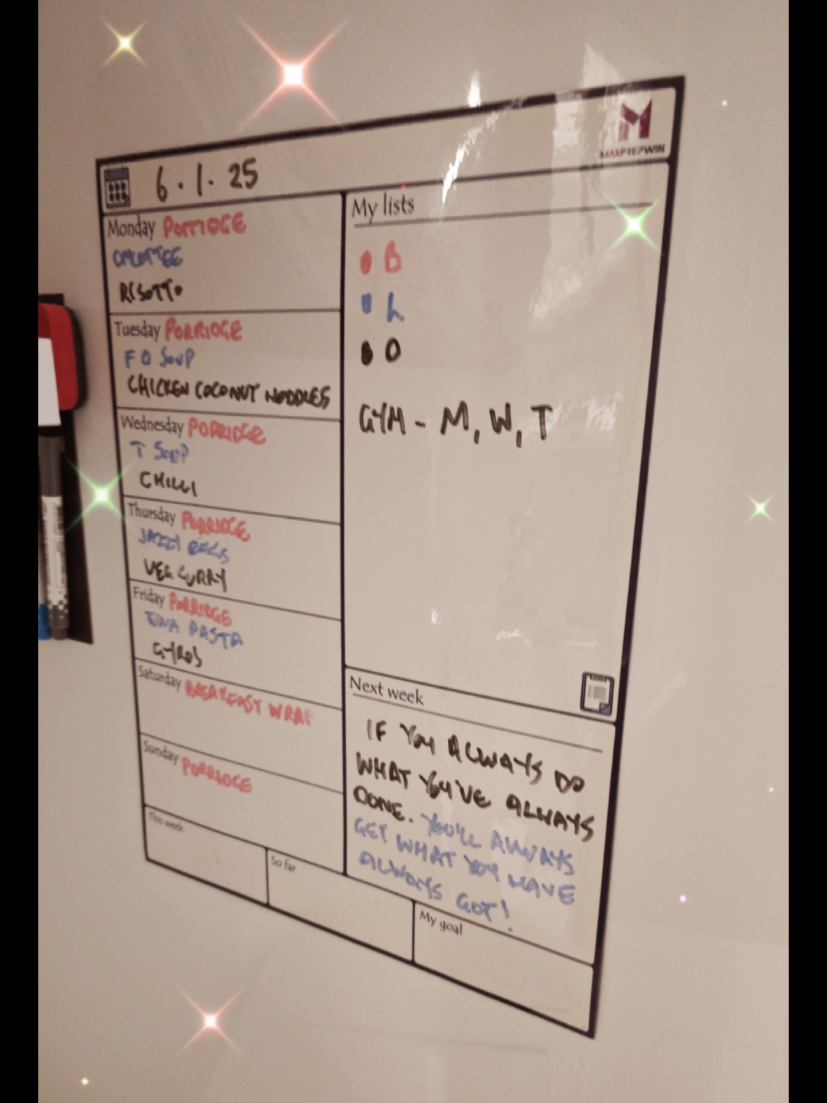 MAXPREPWIN
6.1.25
Monday PORRIDGE
OMLETTEE
RISOTTO
Tuesday PORRIDGE
F O SOUP
CHICKEN COCONUT NODDLES
Wednesday PORRIDGE
T SOUP
CHILLI
Thursday PORRIDGE
JAZZY EGGS
VEG CURRY
Friday PORRIDGE
TUNA PASTA
GYROS
Saturday BREAKFAST WRAP
Sunday PORRIDGE
This week
So far
My goal
My lists
B
L
D
GYM - M, W, T
Next week
IF YOU ALWAYS DO
WHAT YOU'VE ALWAYS
DONE. YOU'LL ALWAYS
GET WHAT YOU HAVE
ALWAYS GOT!